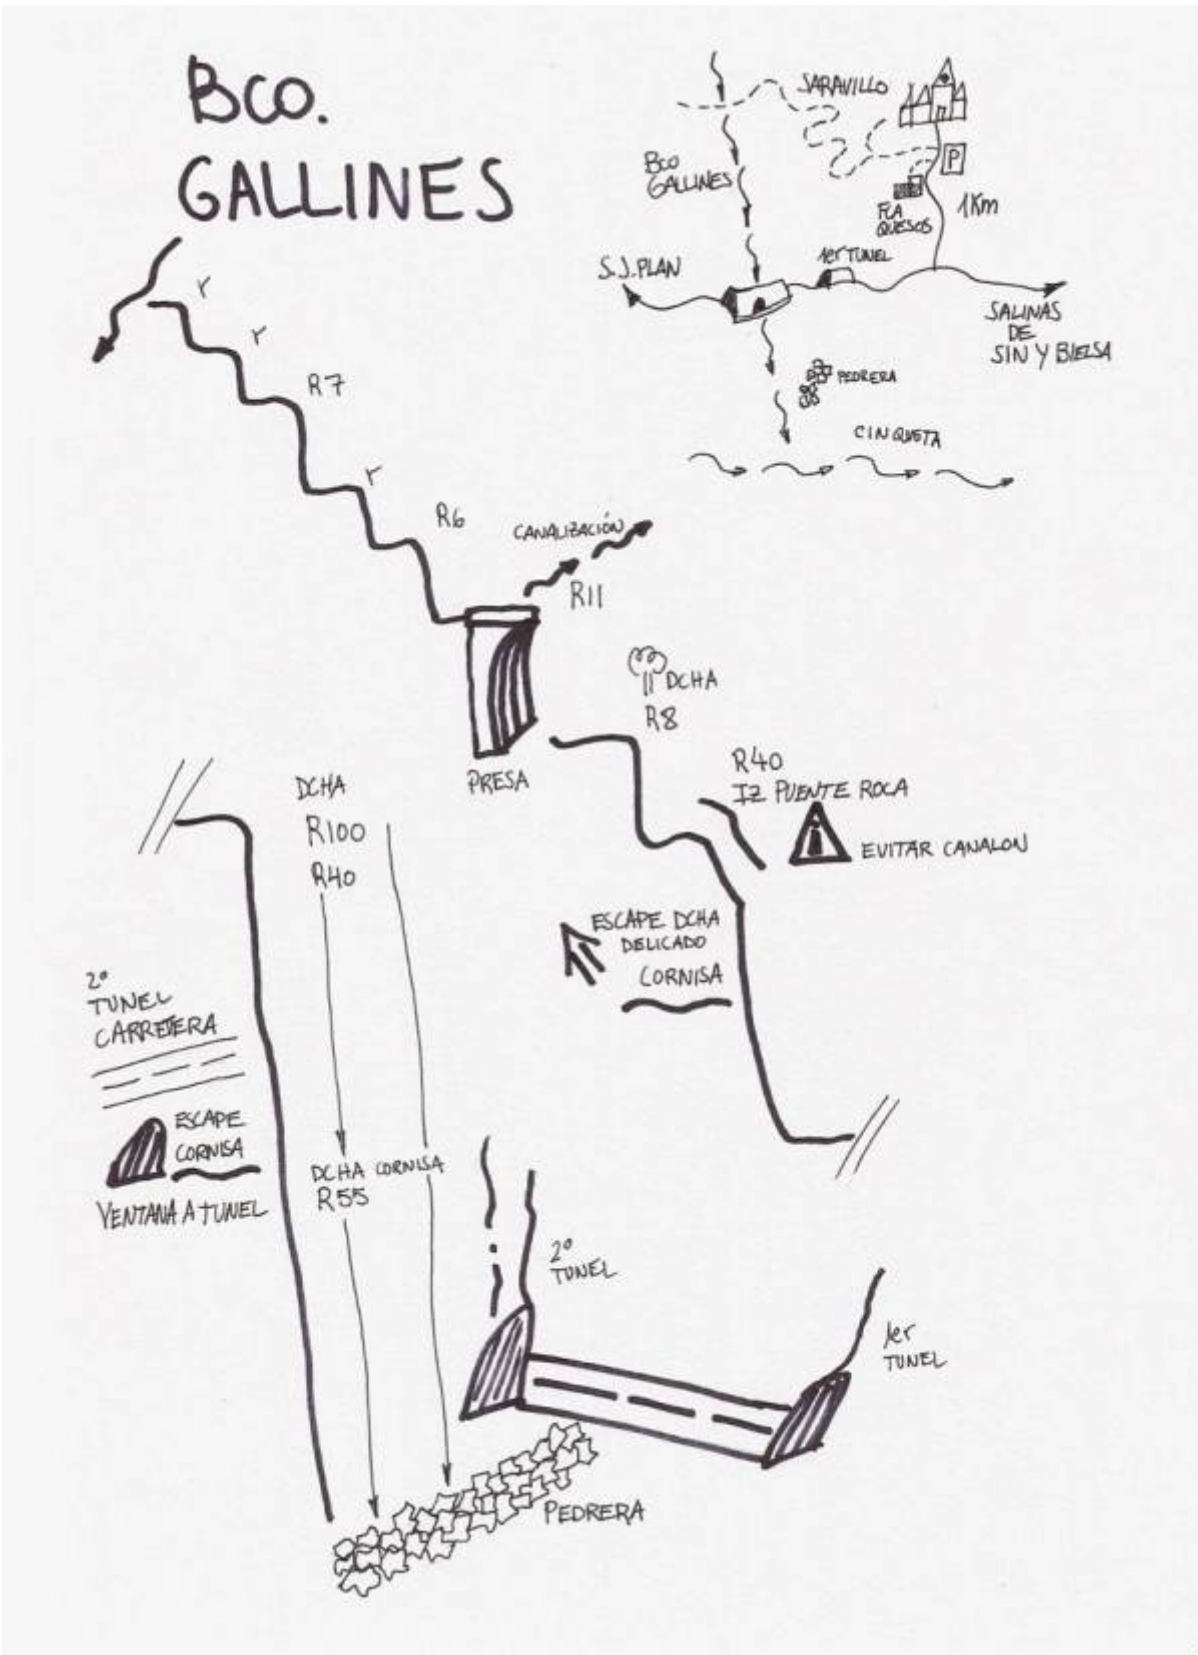 BCO.
GALLINES
SARAVILLO
P
BCO
GALLINES
FCA
QUESOS
1Km
1er TUNEL
S.J. PLAN
SALINAS
DE
SIN Y BIELSA
PEDRERA
CINQUETA
r
r
R7
r
R6
CANALIZACIÓN
R11
PRESA
DCHA
R8
R40
IZ PUENTE ROCA
EVITAR CANALON
ESCAPE DCHA
DELICADO
CORNISA
DCHA
R100
R40
2º
TUNEL
CARRETERA
ESCAPE
CORNISA
VENTANA A TUNEL
DCHA CORNISA
R55
2º
TUNEL
1er
TUNEL
PEDRERA